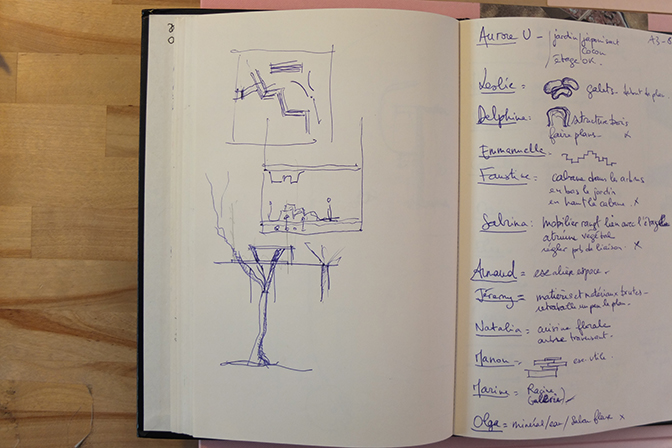 Aurore U - / jardin / japonisant
cocon
A3-
/ étage OK.
Leslie = galets -
Delphine : structure bois
faire plans - x
Emmanuelle -
Faustine : cabane dans les arbres
en bas le jardin
en haut la cabane . x
Sabrina : mobilier rayé lien avec l'étage
atrium végétal
régler pb de liaison . x
Arnaud = escalier espace .
Jérémy = matières et matériaux brutes -
retravaille un peu le plan .
Natalia = cuisine florale
arbre traversant .
Manon = esc. utile .
Marine = Racine
Galerie
Olga = minéral / eau / x